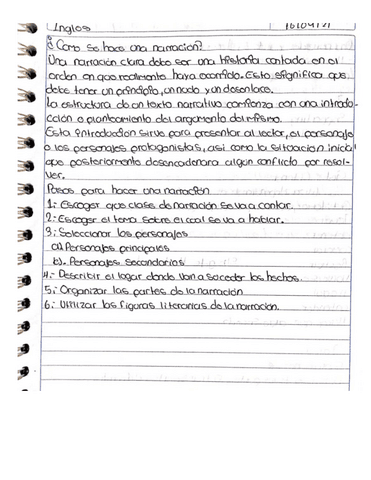 Ingles
¿Como se hace una narracion?
Una narración clara debe ser una historia contada en el
orden en que realmente haya ocurrido. Esto significa que
debe tener un principio, un nudo y un desenlace.
La estructura de un texto narrativo comienza con una introdu-
cción o planteamiento del argumento del mismo.
Esta introducción sirve para presentar al lector, el personaje
o los personajes protagonistas, asi como la situacion inicial
que posteriormente desencadenara algún conflicto por resol-
ver.
Pasos para hacer una narración
1.- Escoger que clase de narración se va a contar.
2.- Escoger el tema sobre el cual se va a hablar.
3.- Seleccionar los personajes
a) Personajes principales
b). Personajes secundarios
4.- Describir el lugar donde van a suceder los hechos.
5.- Organizar las partes de la narración
6.- Utilizar las figuras literarias de la narración.